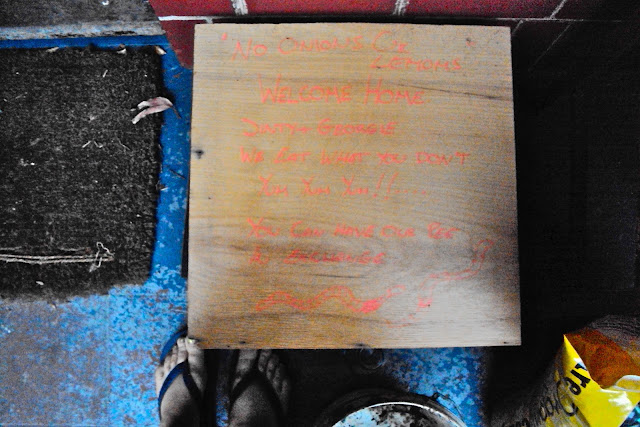 "NO ONIONS OR
LEMONS"
WELCOME HOME
+ GEORGIE
WE EAT WHAT YOU DON'T
YUM YUM YUM!!
YOU CAN HAVE OUR PEE
IN EXCHANGE